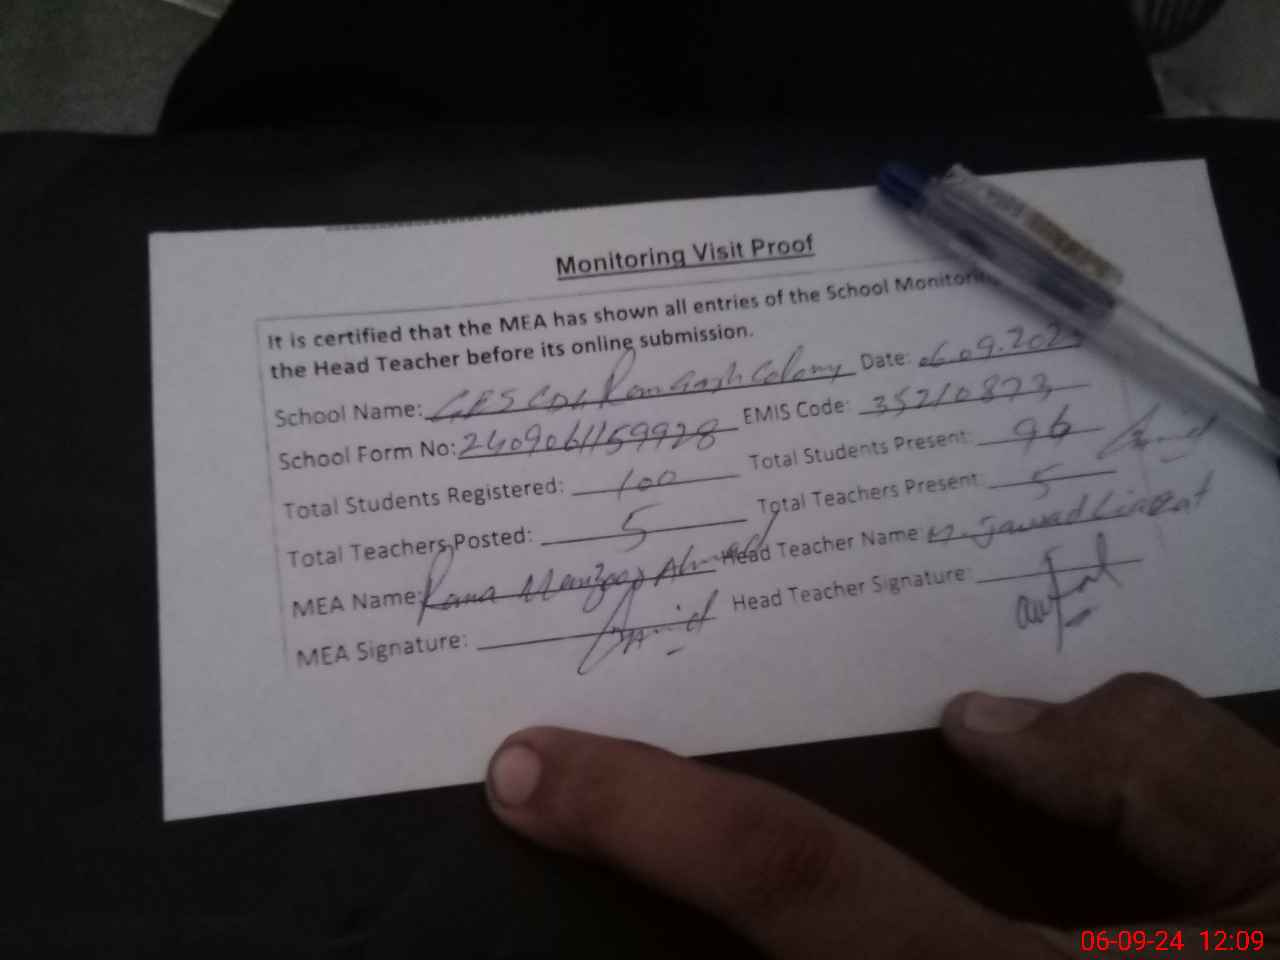 Monitoring Visit Proof
It is certified that the MEA has shown all entries of the School Monitoring
the Head Teacher before its online submission.
School Name: Colony Date: 06.09.202
School Form No: 2409061159928 EMIS Code: 35210873
Total Students Registered: 100 Total Students Present: 96
Total Teachers Posted: 5 Total Teachers Present: 5
MEA Name: Rana Head Teacher Name: M. Jawad
MEA Signature: Head Teacher Signature:
06-09-24 12:09